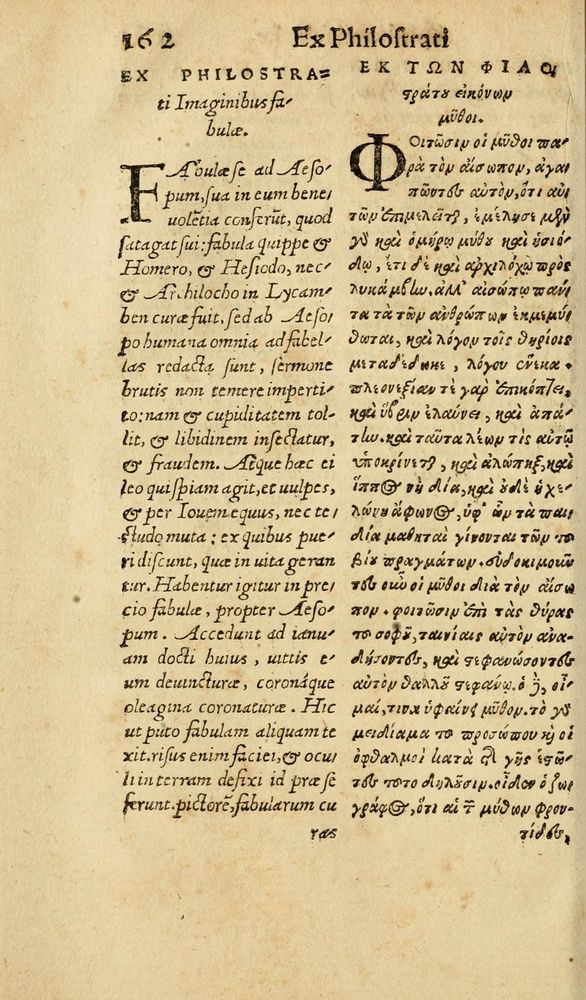 162 Ex Philostrati
EX PHILOSTRA=
ti Imaginibus fa/
bulæ.
FAbulæ se ad Aeso/
pum, sua in eum bene/
uolẽtia conferũt, quod
satagat sui: fabula quippe &
Homero, & Hesiodo, nec/
& Archilocho in Lycam/
ben curæ fuit, sed ab Aeso/
po humana omnia ad fabel/
las redacta sunt, sermone
brutis non temere imperti/
to: nam & cupiditatem tol/
lit, & libidinem insectatur,
& fraudem. Atque hæc ei
leo quispiam agit, et uulpes,
& per Iouem equus, nec te/
studo muta: ex quibus pue/
ri discunt, quæ in uita geran
tur. Habentur igitur in pre/
cio fabulæ, propter Aeso/
pum. Accedunt ad ianu/
am docti huius, uittis e/
um deuincturæ, coronáque
oleagina coronaturæ. Hic
ut puto fabulam aliquam te
xit. risus enim faciei, & ocu/
li in terram defixi id præ se
ferunt. pictorẽ, fabularum cu
ras
ΕΚ ΤΩΝ ΦΙΛΟ,
στράτου εἰκόνων
μῦθοι.
ΦΟιτῶσιν οἱ μῦθοι πα/
ρὰ τὸν αἴσωπον, ἀγα/
πῶντες αὐτὸν, ὅτι αὐ/
τῶν ἐπιμελεῖται, ἐμέλησε μὲν
γὸ καὶ ὁμήρῳ μύθου καὶ ἡσιό/
δῳ, ἔτι δὲ καὶ ἀρχιλόχῳ πρὸς
λυκάμβην. ἀλλ' αἰσώπῳ πάν/
τα τὰ τῶν ἀνθρώπων ἐκμεμύ/
θωται, καὶ λόγου τοῖς θηρίοις
μεταδέδωκε, λόγου ἕνεκα.
πλεονεξίαν τε γὰρ ἐπικόπτει,
καὶ ὕβριν ἐλαύνει, καὶ ἀπά/
την. καὶ ταῦτα λέων τὶς αὐτῷ
ὑποκρίνεται, καὶ ἀλώπηξ, καὶ
ἵππος νὴ δία, καὶ οὐδὲ ἡ χε/
λώνη ἄφωνος, ὑφ' ὧν τὰ παι/
δία μαθηταὶ γίνονται τῶν τοῦ
βίου πραγμάτων. εὐδοκιμοῦν
τες οὖν οἱ μῦθοι διὰ τὸν αἴσω
πον. φοιτῶσιν ἐπὶ τὰς θύρας
τοῦ σοφοῦ, ταινίαις αὐτὸν ἀνα/
δήσοντες, καὶ στεφανώσοντες
αὐτὸν θαλλοῦ στεφάνῳ. ὁ δὲ, οἶ
μαί, τινα ὑφαίνει μῦθον. τὸ γὸ
μειδίαμα τοῦ προσώπου καὶ οἱ
ὀφθαλμοὶ κατὰ τῆς γῆς ἑστῶ/
τες τοῦτο δηλοῦσιν. οἶδεν ὁ ζω/
γράφος, ὅτι αἱ τῶν μύθων φρον/
τίδες,